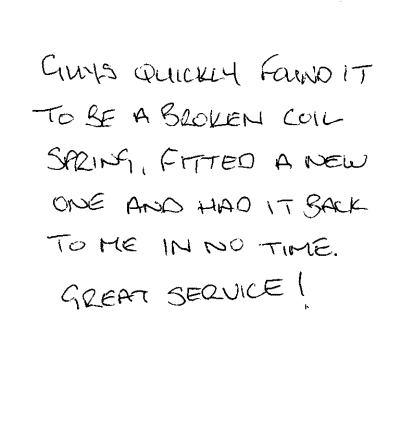 GUYS QUICKLY FOUND IT
TO BE A BROKEN COIL
SPRING, FITTED A NEW
ONE AND HAD IT BACK
TO ME IN NO TIME.
GREAT SERVICE!